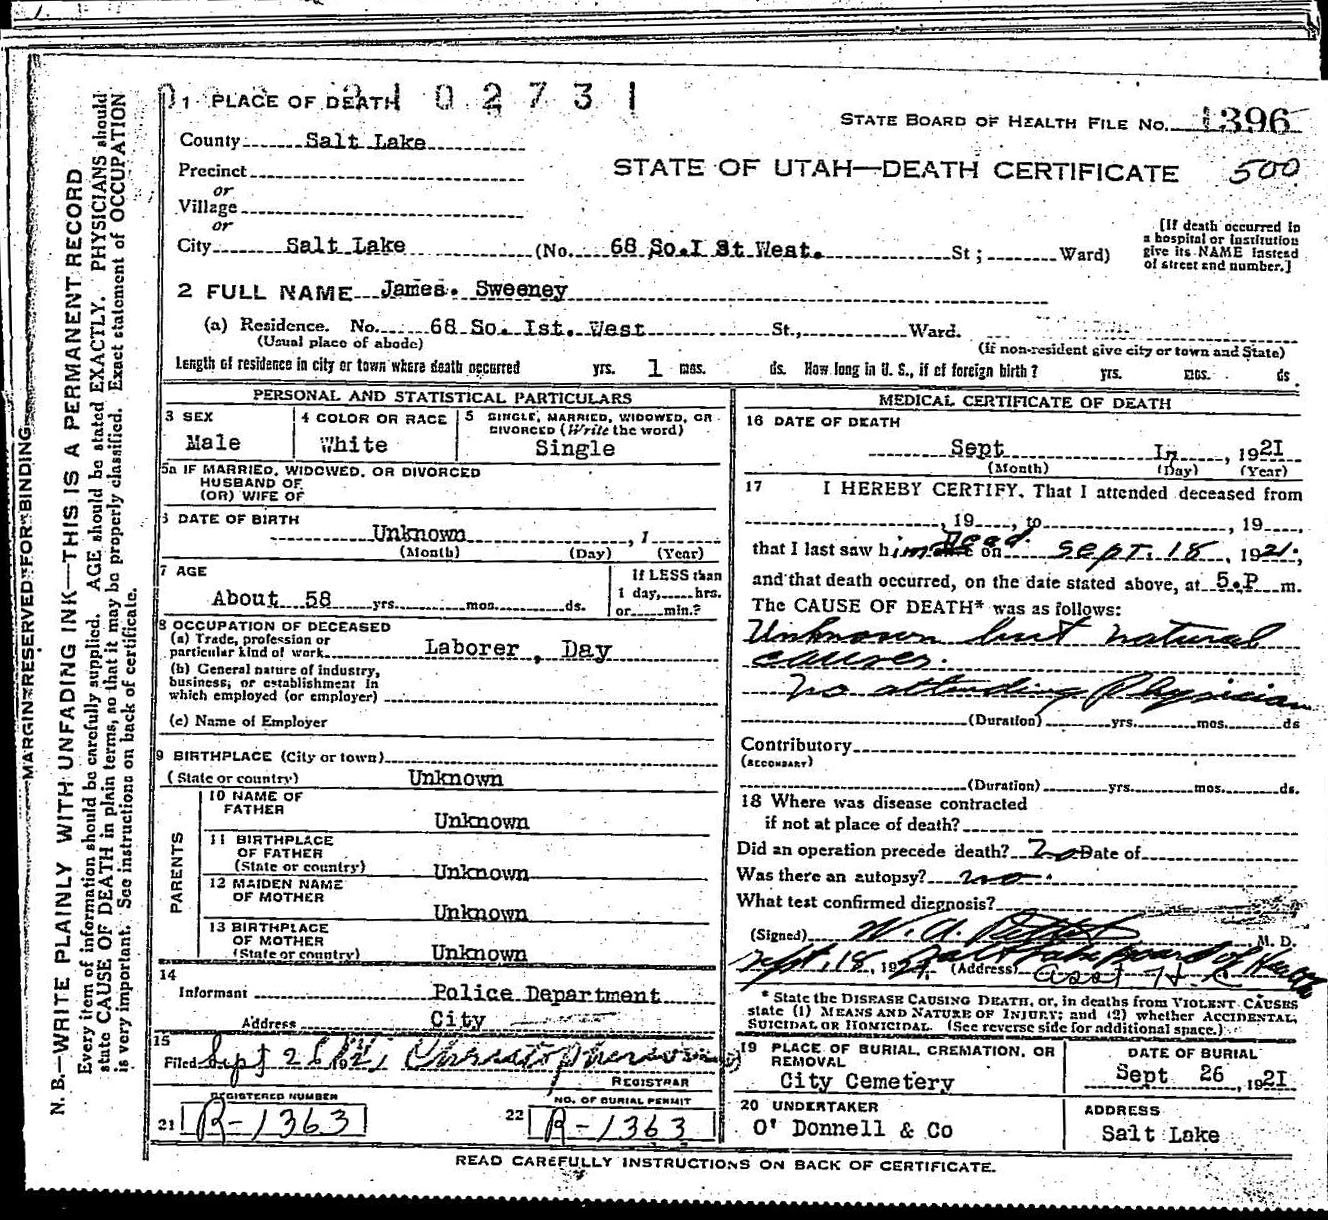 1 PLACE OF DEATH
10273 1
County Salt Lake
STATE BOARD OF HEALTH FILE No. 1396
Precinct
STATE OF UTAH—DEATH CERTIFICATE 500
or
Village
or
City Salt Lake (No. 68 So.I St West. St ; Ward)
[If death occurred in
a hospital or institution
give its NAME instead
of street and number.]
2 FULL NAME James. Sweeney
(a) Residence. No. 68 So. Ist. West St., Ward.
(Usual place of abode)
(if non-resident give city or town and State)
Length of residence in city or town where death occurred yrs. 1 mos. ds. How long in U. S., if of foreign birth? yrs. mos. ds.
PERSONAL AND STATISTICAL PARTICULARS
3 SEX
Male
4 COLOR OR RACE
White
5 SINGLE, MARRIED, WIDOWED, OR
DIVORCED (Write the word)
Single
5a IF MARRIED, WIDOWED, OR DIVORCED
HUSBAND OF
(OR) WIFE OF
6 DATE OF BIRTH
Unknown , 1
(Month) (Day) (Year)
7 AGE
About 58 yrs. mos. ds.
If LESS than
1 day, hrs.
or min.?
8 OCCUPATION OF DECEASED
(a) Trade, profession or
particular kind of work Laborer , Day
(b) General nature of industry,
business, or establishment in
which employed (or employer)
(c) Name of Employer
9 BIRTHPLACE (City or town)
(State or country) Unknown
PARENTS
10 NAME OF
FATHER
Unknown
11 BIRTHPLACE
OF FATHER
(State or country) Unknown
12 MAIDEN NAME
OF MOTHER
Unknown
13 BIRTHPLACE
OF MOTHER
(State or country) Unknown
14
Informant Police Department
Address City
15
Filed Sept 26
REGISTRAR
REGISTERED NUMBER
21 R-1363
NO. OF BURIAL PERMIT
22 R-1363
MEDICAL CERTIFICATE OF DEATH
16 DATE OF DEATH
Sept , 1921
(Month) (Day) (Year)
17 I HEREBY CERTIFY, That I attended deceased from
, 19 , to , 19 ,
that I last saw him dead on Sept. 18 , 1921.,
and that death occurred, on the date stated above, at 5.P m.
The CAUSE OF DEATH* was as follows:
Unknown but natural
causes.
No attending Physician
(Duration) yrs. mos. ds
Contributory
(SECONDARY)
(Duration) yrs. mos. ds.
18 Where was disease contracted
if not at place of death?
Did an operation precede death? No Date of
Was there an autopsy? no.
What test confirmed diagnosis?
(Signed) W. A. M. D.
Sept. 18, 1921. (Address) Salt Lake Board of Health
asst H. C
* State the DISEASE CAUSING DEATH, or, in deaths from VIOLENT CAUSES
state (1) MEANS AND NATURE OF INJURY; and (2) whether ACCIDENTAL,
SUICIDAL OR HOMICIDAL. (See reverse side for additional space.)
19 PLACE OF BURIAL, CREMATION, OR
REMOVAL
City Cemetery
DATE OF BURIAL
Sept 26 , 1921
20 UNDERTAKER
O' Donnell & Co
ADDRESS
Salt Lake
READ CAREFULLY INSTRUCTIONS ON BACK OF CERTIFICATE.
MARGIN RESERVED FOR BINDING
N. B.—WRITE PLAINLY WITH UNFADING INK—THIS IS A PERMANENT RECORD
Every item of information should be carefully supplied. AGE should be stated EXACTLY. PHYSICIANS should
state CAUSE OF DEATH in plain terms, so that it may be properly classified. Exact statement of OCCUPATION
is very important. See instructions on back of certificate.